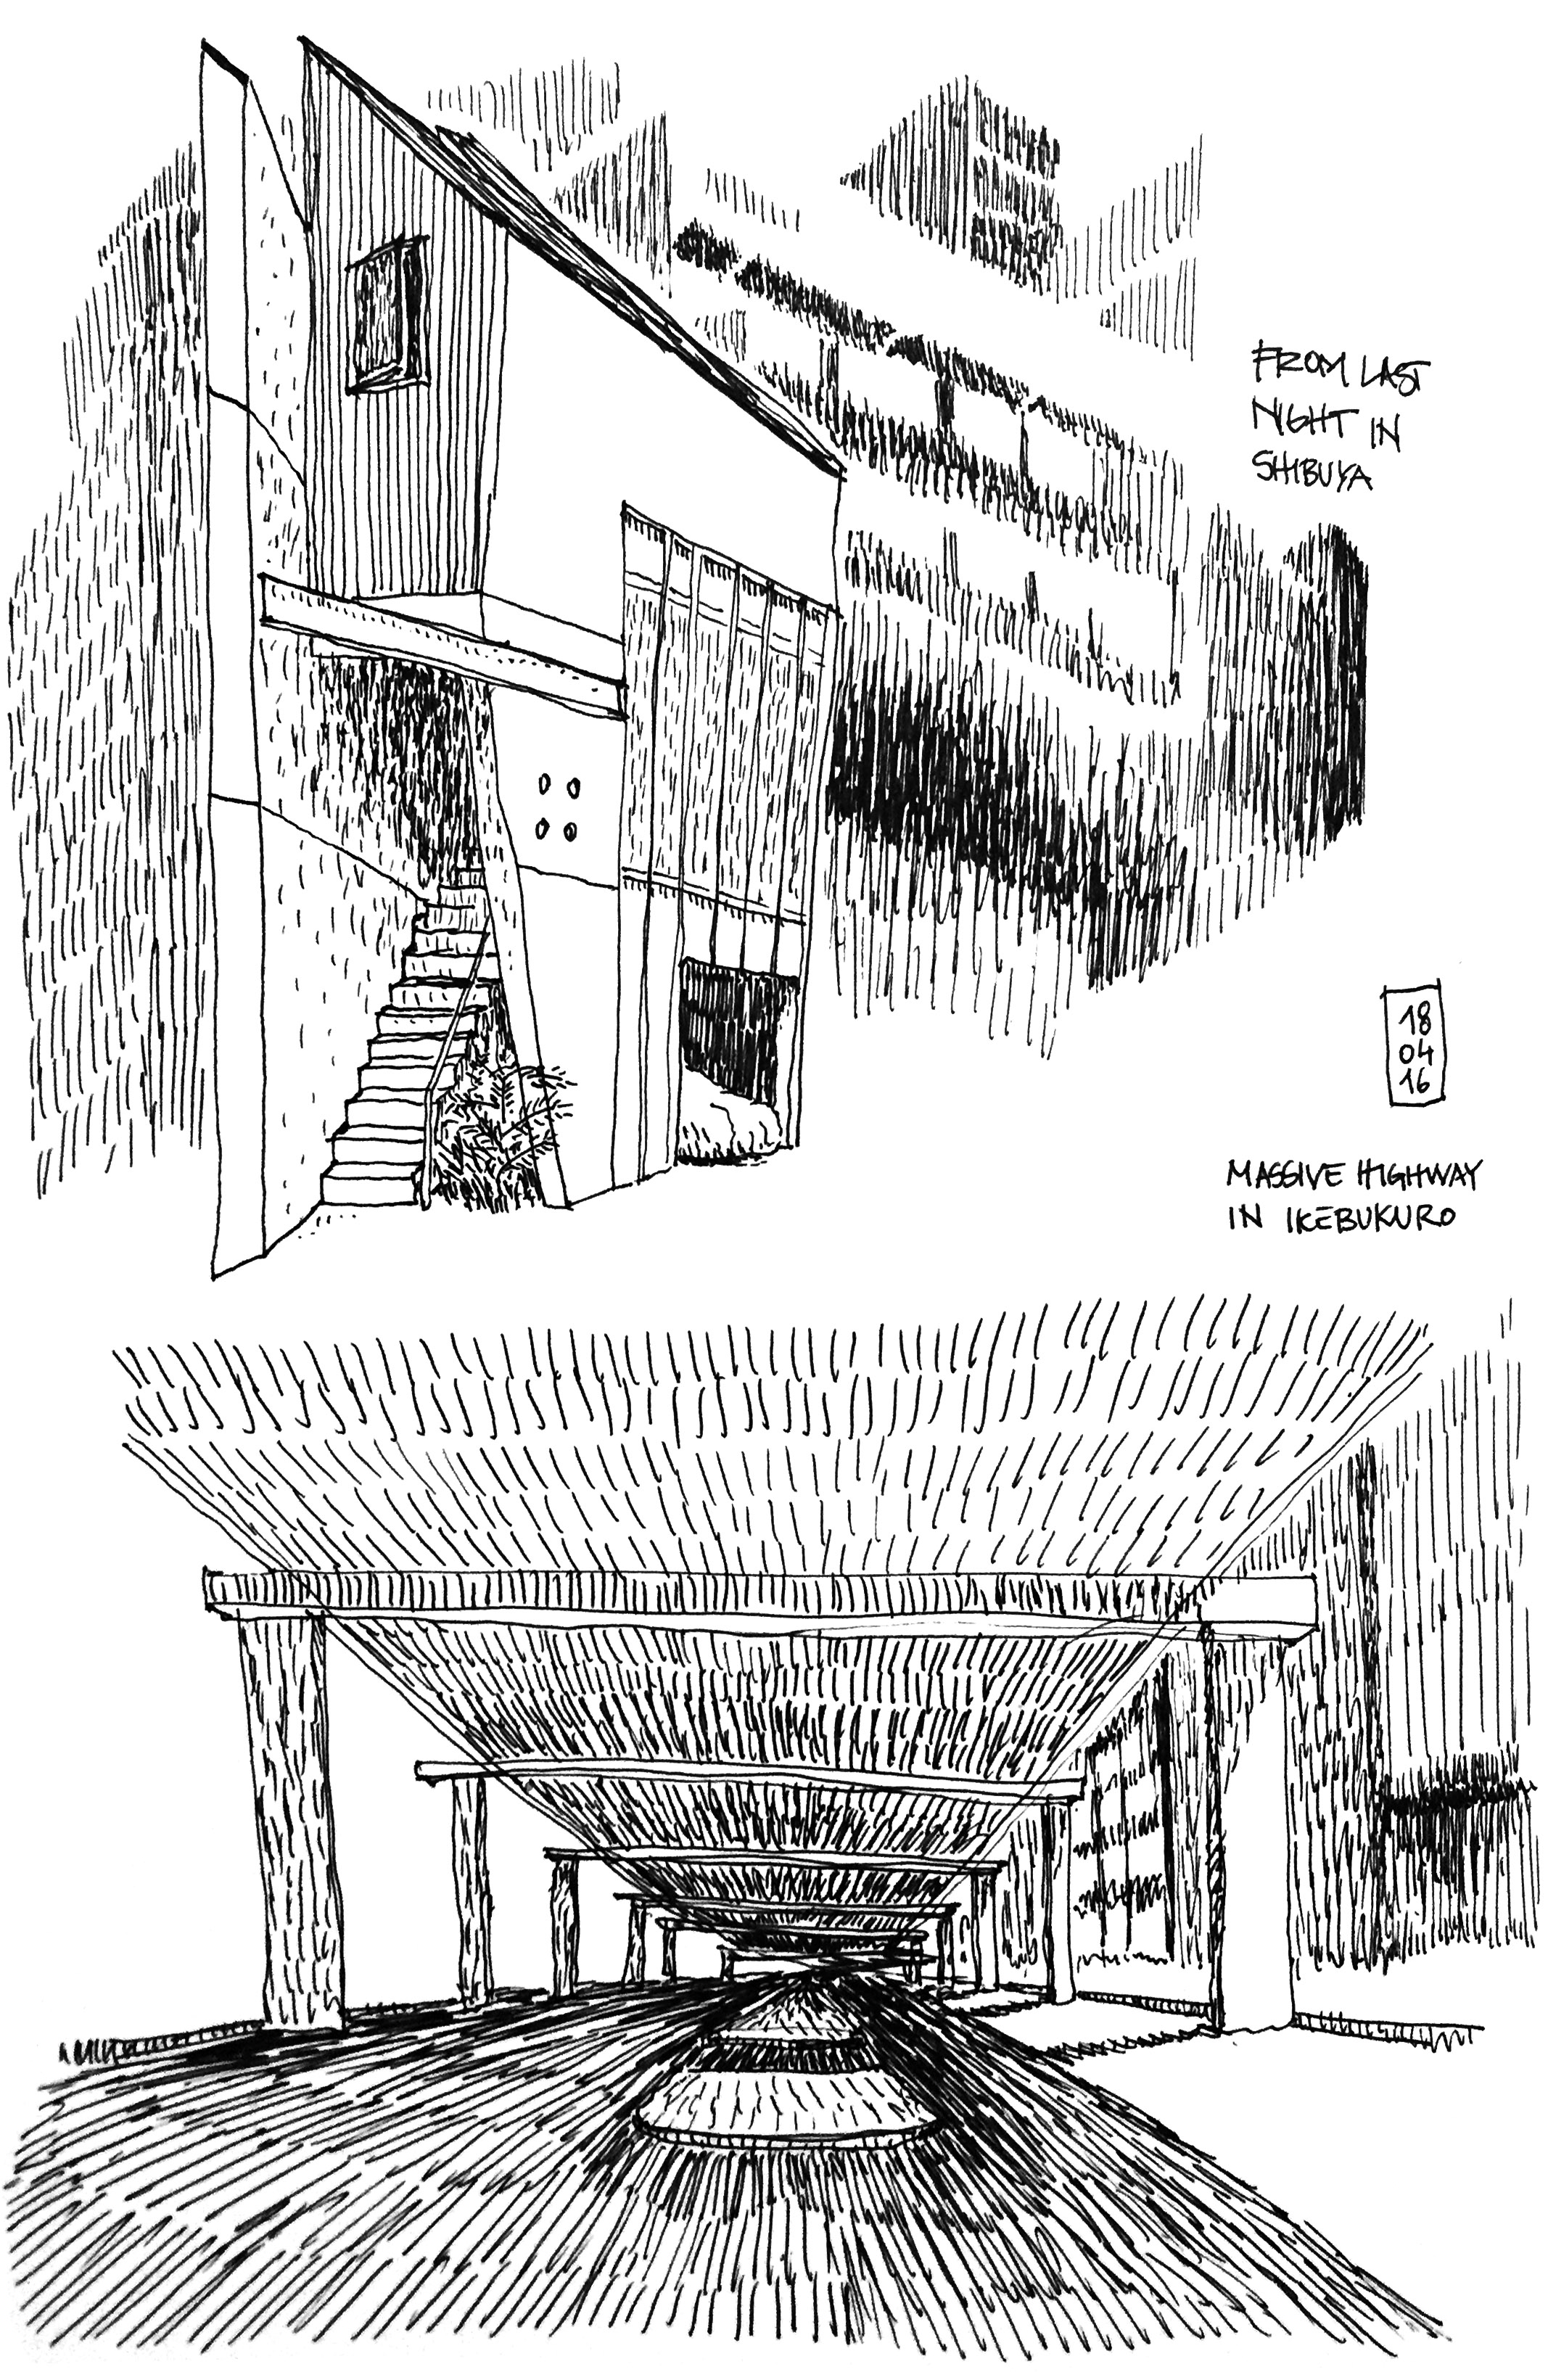 FROM LAST
NIGHT IN
SHIBUYA
18
04
16
MASSIVE HIGHWAY
IN IKEBUKURO